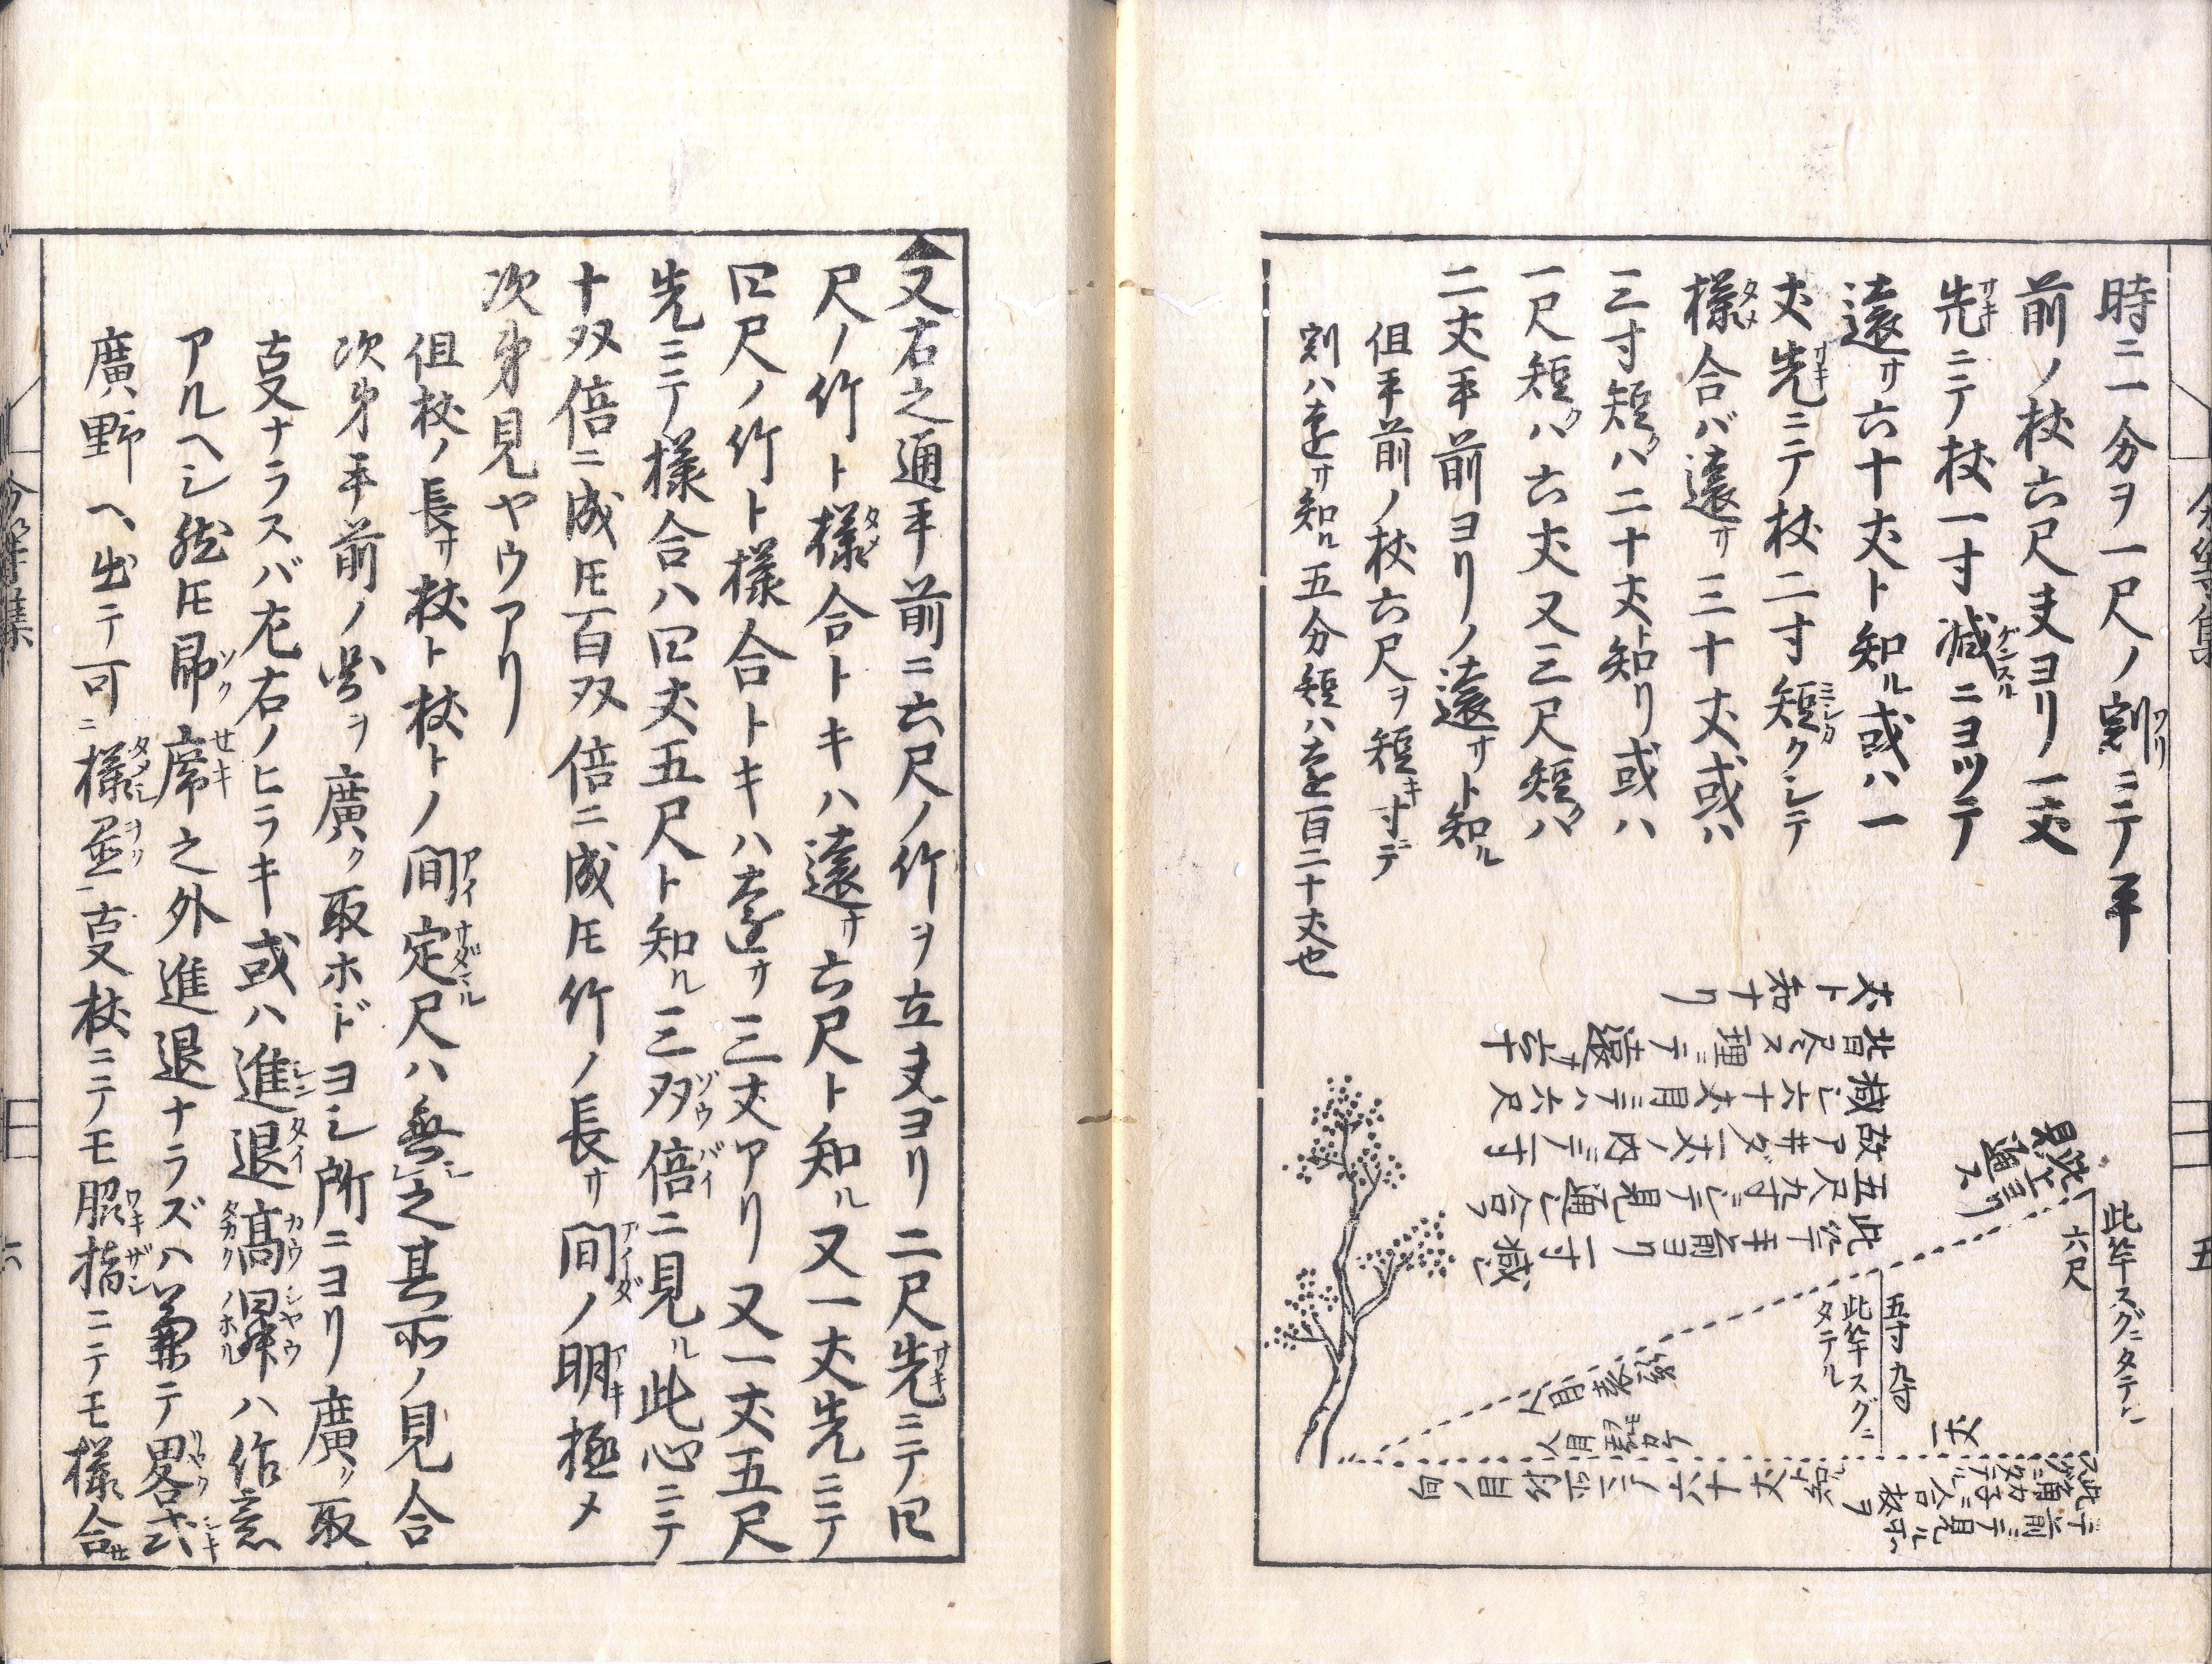 時ニ一分ヲ一尺ノ割ニテ手
前ノ杖六尺夫ヨリ一丈
先ニテ杖一寸減ニヨツテ
遠サ六十丈ト知ル或ハ一
丈先ニテ杖二寸短クシテ
様合バ遠サ三十丈或ハ
三寸短クハ二十丈ト知リ或ハ
一尺短クハ六丈又三尺短クハ
二丈手前ヨリノ遠サト知ル
但手前ノ杖六尺ヲ短キ寸デ
割ハ遠サ知ル五分短ハ遠百二十丈也
此竿スグニタテル
六尺
五寸九寸
此竿スグニ
タテル
一丈
此竿手前ヨリ一寸減シ
五尺九寸ニシテ見通シ合フ
故アキダ一丈ノ内ニテ一寸
減シ六十丈目ニテハ六尺
皆尽ス理ニテ遠サ六十
丈ト知ナリ
又右之通手前ニ六尺ノ竹ヲ立夫ヨリ二尺先ニテ四
尺ノ竹ト様合トキハ遠サ六尺ト知ル又一丈先ニテ
四尺ノ竹ト様合トキハ遠サ三丈アリ又一丈五尺
先ニテ様合ハ四丈五尺ト知ル三双倍ニ見ル此心ニテ
十双倍ニ成トモ百双倍ニ成トモ竹ノ長サ間ノ明極メ
次第見ヤウアリ
但杖ノ長サ杖ト杖トノ間定尺ハ無シ之其所ノ見合
次第手前ノ場ヲ廣ク取ホドヨシ所ニヨリ廣ク取
支ナラスバ左右ノヒラキ或ハ進退高昇ハ作意
アルヘシ然トモ即席之外進退ナラズハ兼テ畧式
廣野ヘ出テ可ニ様置一支杖ニテモ脇指ニテモ様合セ